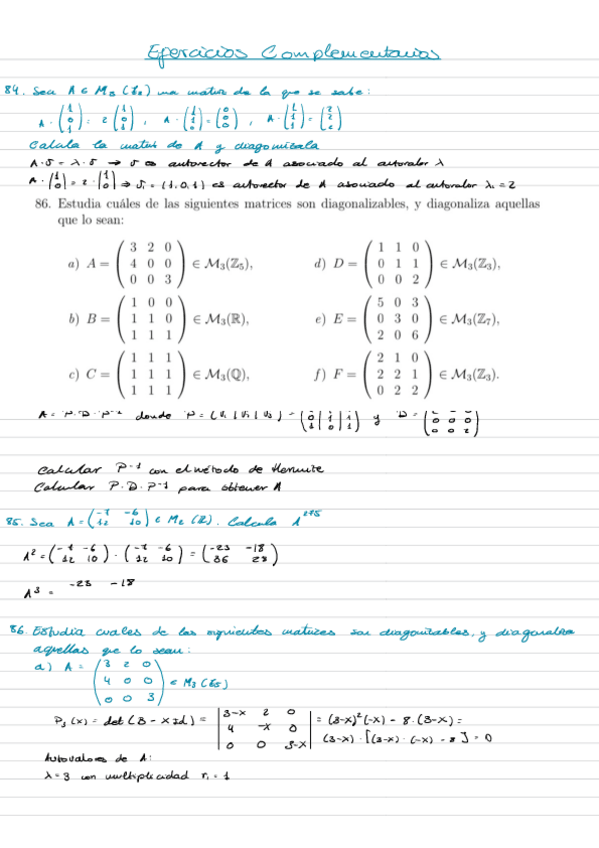 Ejercicios Complementarios
84. Sea A ∈ M₃(ℤ₅) una matriz de la que se sabe:
A·(1 0 1) = 2(1 0 1), A·(1 1 0) = (0 0 0), A·(1 1 1) = (2 2 2)
Calcula la matriz de A y diagonizala
A·v = λ·v → v es autovector de A asociado al autovalor λ
⇒ v₁ = (1,0,1) es autovector de A asociado al autovalor λ₁ = 2
86. Estudia cuáles de las siguientes matrices son diagonalizables, y diagonaliza aquellas
que lo sean:
a) A = (3 2 0; 4 0 0; 0 0 3) ∈ M₃(ℤ₅), d) D = (1 1 0; 0 1 1; 0 0 2) ∈ M₃(ℤ₃),
b) B = (1 0 0; 1 1 0; 1 1 1) ∈ M₃(ℝ), e) E = (5 0 3; 0 3 0; 2 0 6) ∈ M₃(ℤ₇),
c) C = (1 1 1; 1 1 1; 1 1 1) ∈ M₃(ℚ), f) F = (2 1 0; 2 2 1; 0 2 2) ∈ M₃(ℤ₃).
A = P·D·P⁻¹ donde P = (v₁ | v₂ | v₃) y D =
Calcular P⁻¹ con el método de Hermite
Calcular P·D·P⁻¹ para obtener A
85. Sea A = (-7 -6; 12 10) ∈ M₂(ℤ). Calcula A²⁷⁵
A² = (-7 -6; 12 10)·(-7 -6; 12 10) = (-23 -18; 36 28)
A³ = -23 -18
86. Estudia cuales de las siguientes matrices son diagonizables, y diagonaliza
aquellas que lo sean:
a) A = (3 2 0; 4 0 0; 0 0 3) ∈ M₃(ℤ₅)
= det(B - XId) = |3-x 2 0; 4 -x 0; 0 0 3-x| = (3-x)²(-x) - 8·(3-x) =
(3-x)·[(3-x)·(-x) - 8] = 0
Autovalores de A:
λ = 3 con multiplicidad r₁ = 1